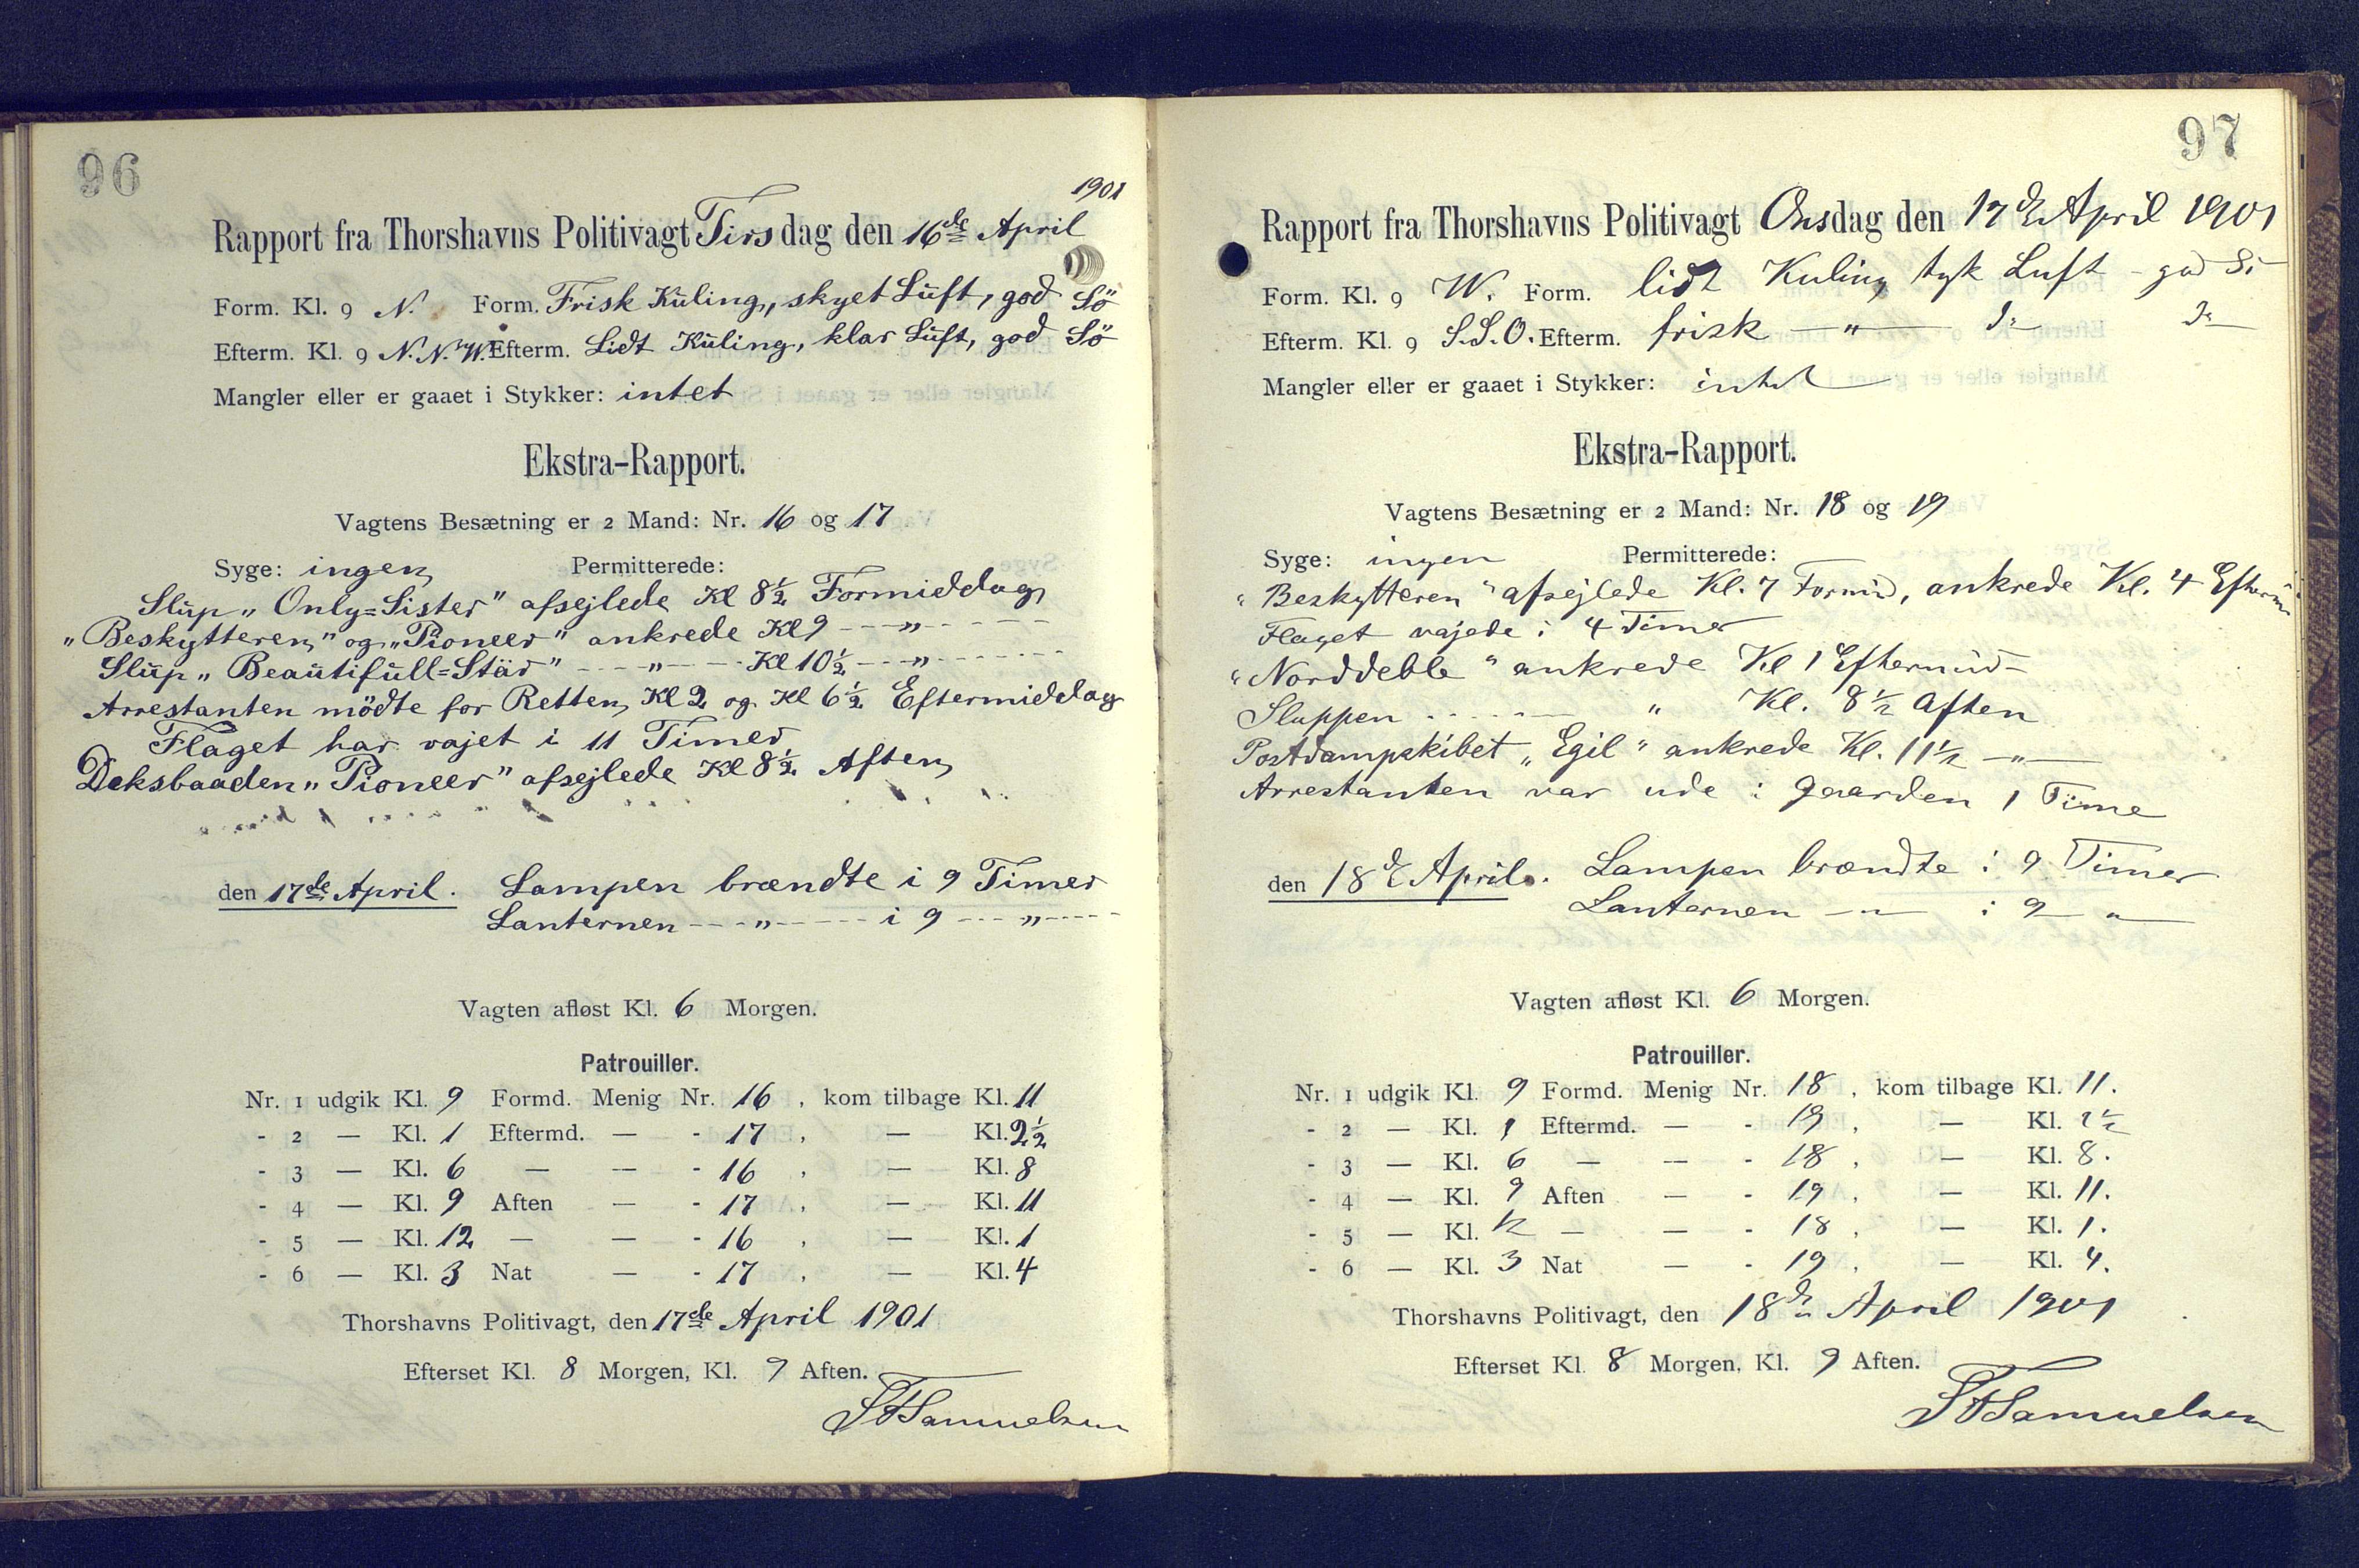 96
1901
Rapport fra Thorshavns Politivagt Tirsdag den 16de April
Form. Kl. 9 N. Form. Frisk Kuling, skyet Luft, god Sö
Efterm. Kl. 9 N.N.W. Efterm. Lidt Kuling, klar Luft, god Sö
Mangler eller er gaaet i Stykker: intet
Ekstra-Rapport.
Vagtens Besætning er 2 Mand: Nr. 16 og 17
Syge: ingen Permitterede:
Slup „Only=Sister" afsejlede Kl 8½ Formiddag
„Beskytteren" og „Pioneer" ankrede Kl 9 — „ —
Slup „Beautifull=Stär" — „ — Kl 10½ — „ —
Arrestanten mödte for Retten Kl 2 og Kl 6½ Eftermiddag
Flaget har vajet i 11 Timer
Deksbaaden „Pioneer" afsejlede Kl 8½ Aften
den 17de April. Lampen brændte i 9 Timer
Lanternen — „ — i 9 — „ —
Vagten afløst Kl. 6 Morgen.
Patrouiller.
Nr. 1 udgik Kl. 9 Formd. Menig Nr. 16, kom tilbage Kl. 11
- 2 — Kl. 1 Eftermd. — - 17, — Kl. 2½
- 3 — Kl. 6 — — - 16, — Kl. 8
- 4 — Kl. 9 Aften — - 17, — Kl. 11
- 5 — Kl. 12 — — - 16, — Kl. 1
- 6 — Kl. 3 Nat — - 17, — Kl. 4
Thorshavns Politivagt, den 17de April 1901
Efterset Kl. 8 Morgen, Kl. 9 Aften.
Samuelsen
97
Rapport fra Thorshavns Politivagt Onsdag den 17de April 1901
Form. Kl. 9 W. Form. lidt Kuling tyk Luft - god Sö
Efterm. Kl. 9 S.S.O. Efterm. frisk — „ — do do
Mangler eller er gaaet i Stykker: intet
Ekstra-Rapport.
Vagtens Besætning er 2 Mand: Nr. 18 og 19
Syge: ingen Permitterede:
„Beskytteren" afsejlede Kl. 7 Formid, ankrede Kl. 4 Eftermi
Flaget vajede i 4 Timer
„Norddeble" ankrede Kl 1 Eftermid-
Sluppen — „ Kl. 8½ Aften
Postdampskibet „Egil" ankrede Kl. 11½ — „ —
Arrestanten var ude i Gaarden 1 Time
den 18de April. Lampen brændte i 9 Timer
Lanternen — „ — i 9 — „ —
Vagten afløst Kl. 6 Morgen.
Patrouiller.
Nr. 1 udgik Kl. 9 Formd. Menig Nr. 18, kom tilbage Kl. 11.
- 2 — Kl. 1 Eftermd. — - 19, — Kl. 2½
- 3 — Kl. 6 — — - 18, — Kl. 8.
- 4 — Kl. 9 Aften — - 19, — Kl. 11.
- 5 — Kl. 12 — — - 18, — Kl. 1.
- 6 — Kl. 3 Nat — - 19, — Kl. 4.
Thorshavns Politivagt, den 18de April 1901
Efterset Kl. 8 Morgen, Kl. 9 Aften.
Samuelsen